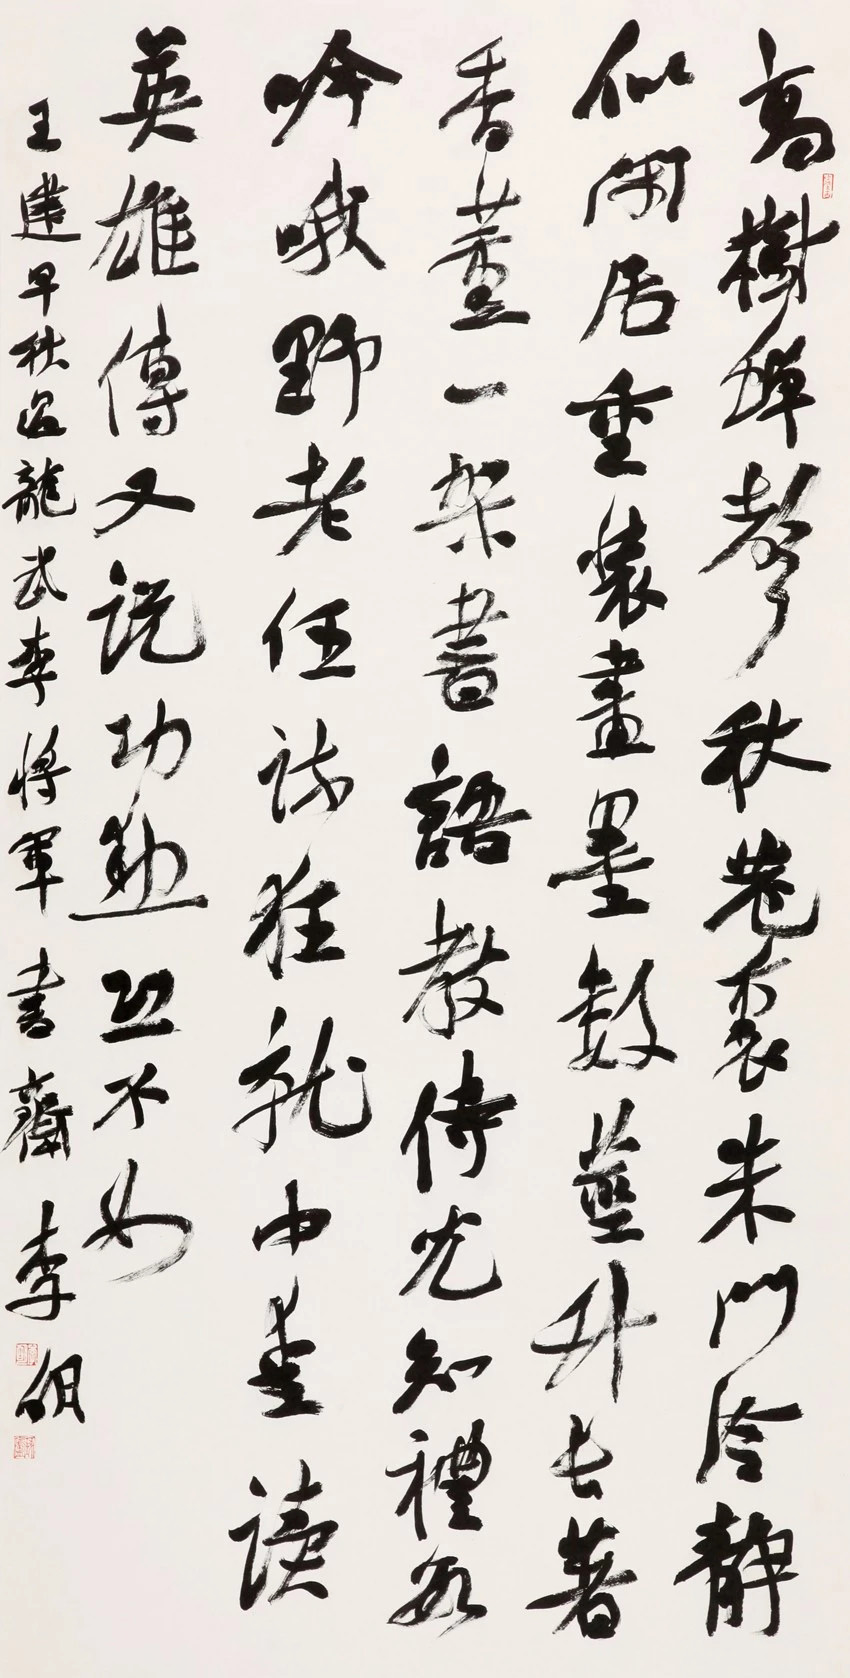 高樹蟬聲秋巷裏朱門冷靜
似閑居重裝畫墨數莖竹長著
香薰一架書語教侍兒知禮數
吟哦野老任疏狂就中愛讀
英雄傳又說功勳恐不如
王建早秋過龍武李將軍書齋 李